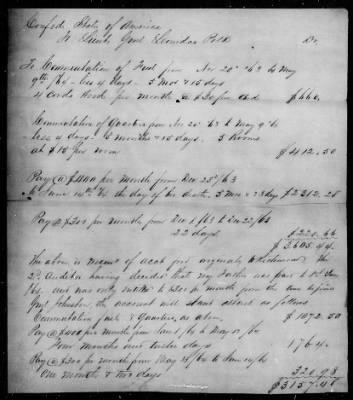 Confed. States of America
To Lieut. Genl Leonidas Polk Dr.
To Commutation of Fuel from Nov 20" 63 to May
9th /64 - less 4 days - 5 mos & 15 days
4 Cords Wood per month @ $30 per Cord $660.
Commutation of Quarters from Nov 20" 63 to May 9" 64
- less 4 days - 5 months & 15 days. 5 Rooms
at $15 per room $412.50
Pay @ $400 per month from Dec 23" /63
to June 14th 64 the day of his death. 5 mos & 23 days $2312.25
Pay @ $300 per month from Dec 1 /63 to Dec 22 /63
22 days $220.66
$3605.44
The above is account of a cash paid originally
2d Auditor having decided that my Father was
and was only entitled to $300 per month from the time he joined
Genl Johnston, the account will stand as follows
Commutation fuel & Quarters, as above, $1072.50
Pay @ $400 per month from Jany 1/64 to May 12/64
Four months and twelve days 1764.
Pay @ $300 per month from May 13/64 to June 14/64
One month & two days 320.98
$3157.48